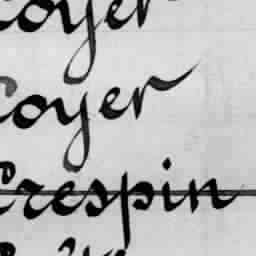 Coyer
Coyer
Crespin